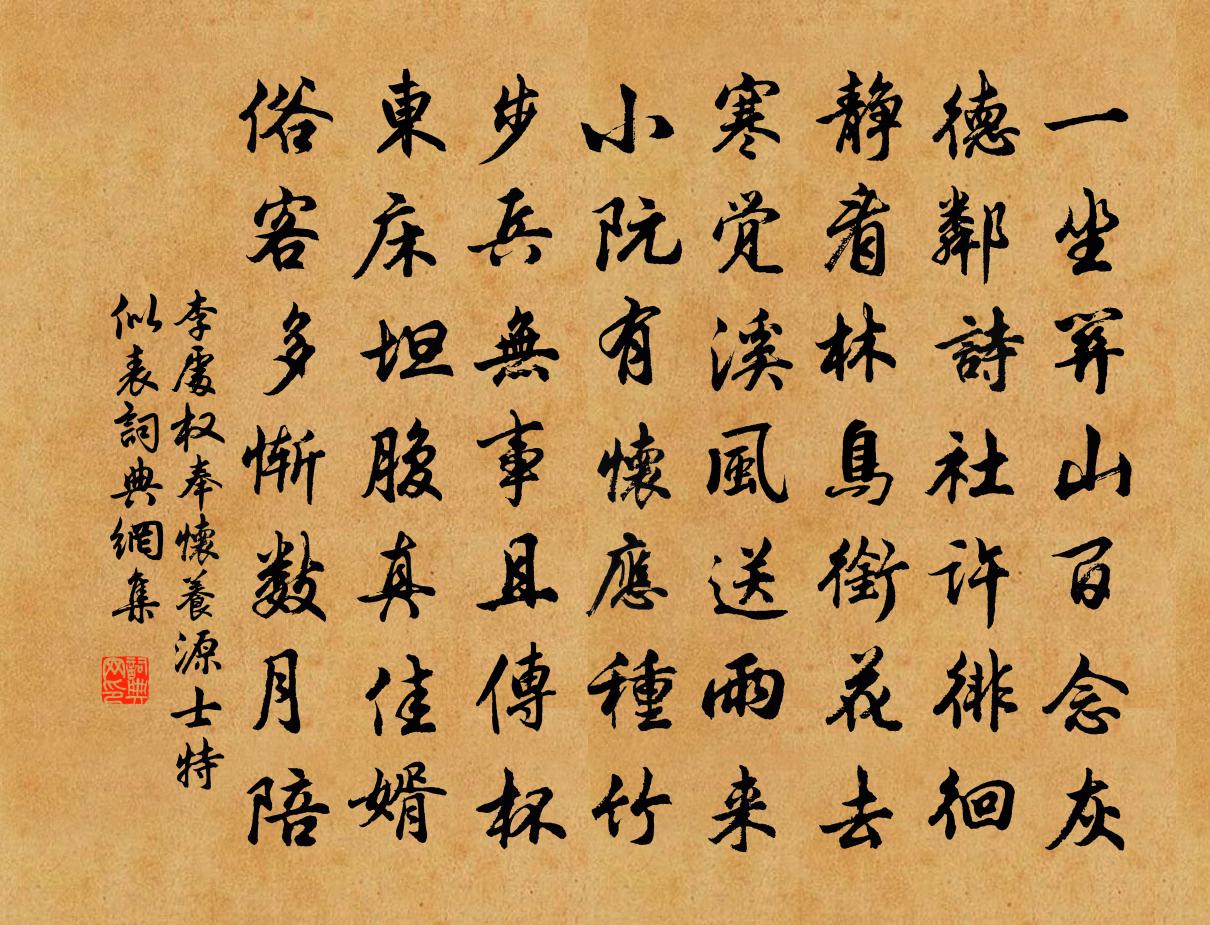 一坐箳山百念灰
德鄰詩社許徘徊
靜看林鳥銜花去
寒覺溪風送雨来
小阮有懷應種竹
步兵無事且傳杯
東床坦腹真佳婿
俗客多慚數月陪
李處权奉懷養源士特
似表詞典網集
詞典网印